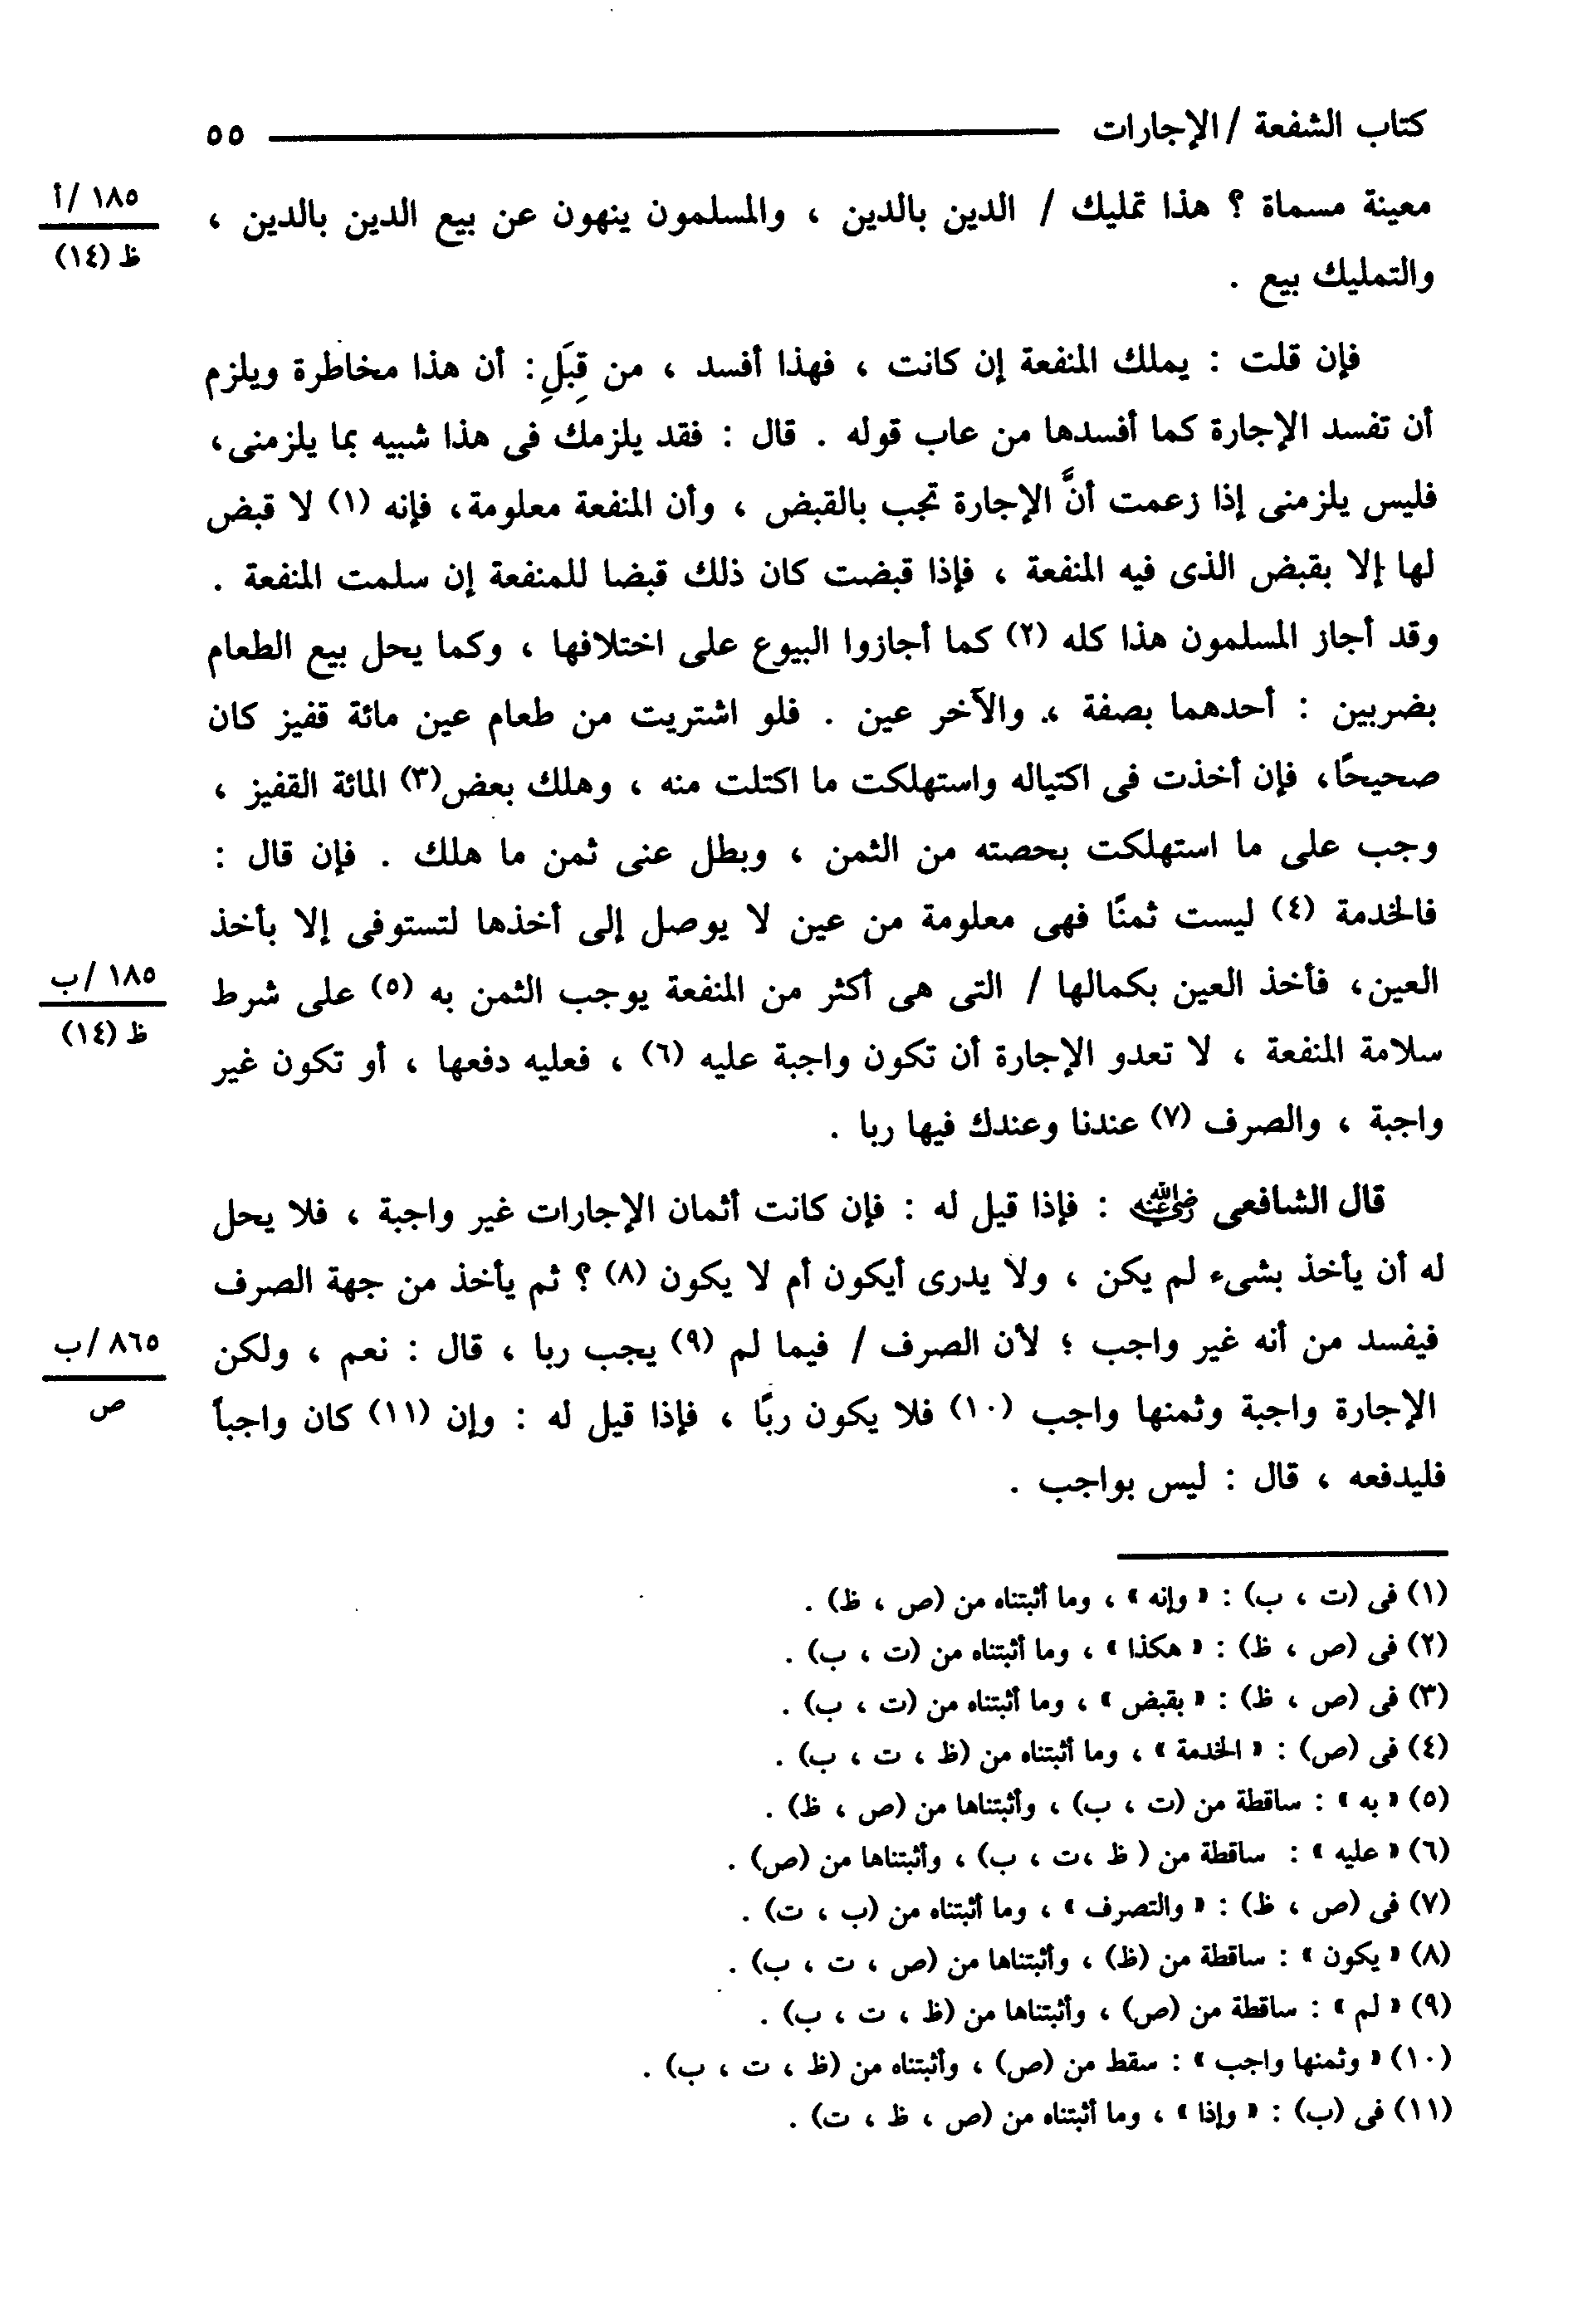 كتاب الشفعة / الإجارات ٥٥
معينة مسماة ؟ هذا تمليك / الدين بالدين ، والمسلمون ينهون عن بيع الدين بالدين ،
١٨٥ / أ
ظ (١٤)
والتمليك بيع .
فإن قلت : يملك المنفعة إن كانت ، فهذا أفسد ، من قِبَلِ : أن هذا مخاطرة ويلزم
أن تفسد الإجارة كما أفسدها من عاب قوله . قال : فقد يلزمك فى هذا شبيه بما يلزمنى ،
فليس يلزمنى إذا زعمت أنَّ الإجارة تجب بالقبض ، وأن المنفعة معلومة ، فإنه (١) لا قبض
لها إلا بقبض الذى فيه المنفعة ، فإذا قبضت كان ذلك قبضا للمنفعة إن سلمت المنفعة .
وقد أجاز المسلمون هذا كله (٢) كما أجازوا البيوع على اختلافها ، وكما يحل بيع الطعام
بضربين : أحدهما بصفة ، والآخر عين . فلو اشتريت من طعام عين مائة قفيز كان
صحيحًا ، فإن أخذت فى اكتياله واستهلكت ما اكتلت منه ، وهلك بعض (٣) المائة القفيز ،
وجب على ما استهلكت بحصته من الثمن ، وبطل عنى ثمن ما هلك . فإن قال :
فالخدمة (٤) ليست ثمنًا فهى معلومة من عين لا يوصل إلى أخذها لتستوفى إلا بأخذ
العين ، فأخذ العين بكمالها / التى هى أكثر من المنفعة يوجب الثمن به (٥) على شرط
١٨٥ / ب
ظ (١٤)
سلامة المنفعة ، لا تعدو الإجارة أن تكون واجبة عليه (٦) ، فعليه دفعها ، أو تكون غير
واجبة ، والصرف (٧) عندنا وعندك فيها ربا .
قال الشافعى رضي الله عنه : فإذا قيل له : فإن كانت أثمان الإجارات غير واجبة ، فلا يحل
له أن يأخذ بشىء لم يكن ، ولا يدرى أيكون أم لا يكون (٨) ؟ ثم يأخذ من جهة الصرف
فيفسد من أنه غير واجب ؛ لأن الصرف / فيما لم (٩) يجب ربا ، قال : نعم ، ولكن
٨٦٥ / ب
ص
الإجارة واجبة وثمنها واجب (١٠) فلا يكون ربًا ، فإذا قيل له : وإن (١١) كان واجبًا
فليدفعه ، قال : ليس بواجب .
(١) فى (ت ، ب) : « وإنه » ، وما أثبتناه من (ص ، ظ) .
(٢) فى (ص ، ظ) : « هكذا » ، وما أثبتناه من (ت ، ب) .
(٣) فى (ص ، ظ) : « بقبض » ، وما أثبتناه من (ت ، ب) .
(٤) فى (ص) : « الخدمة » ، وما أثبتناه من (ظ ، ت ، ب) .
(٥) « به » : ساقطة من (ت ، ب) ، وأثبتناها من (ص ، ظ) .
(٦) « عليه » : ساقطة من ( ظ ،ت ، ب) ، وأثبتناها من (ص) .
(٧) فى (ص ، ظ) : « والتصرف » ، وما أثبتناه من (ب ، ت) .
(٨) « يكون » : ساقطة من (ظ) ، وأثبتناها من (ص ، ت ، ب) .
(٩) « لم » : ساقطة من (ص) ، وأثبتناها من (ظ ، ت ، ب) .
(١٠) « وثمنها واجب » : سقط من (ص) ، وأثبتناه من (ظ ، ت ، ب) .
(١١) فى (ب) : « وإذا » ، وما أثبتناه من (ص ، ظ ، ت) .